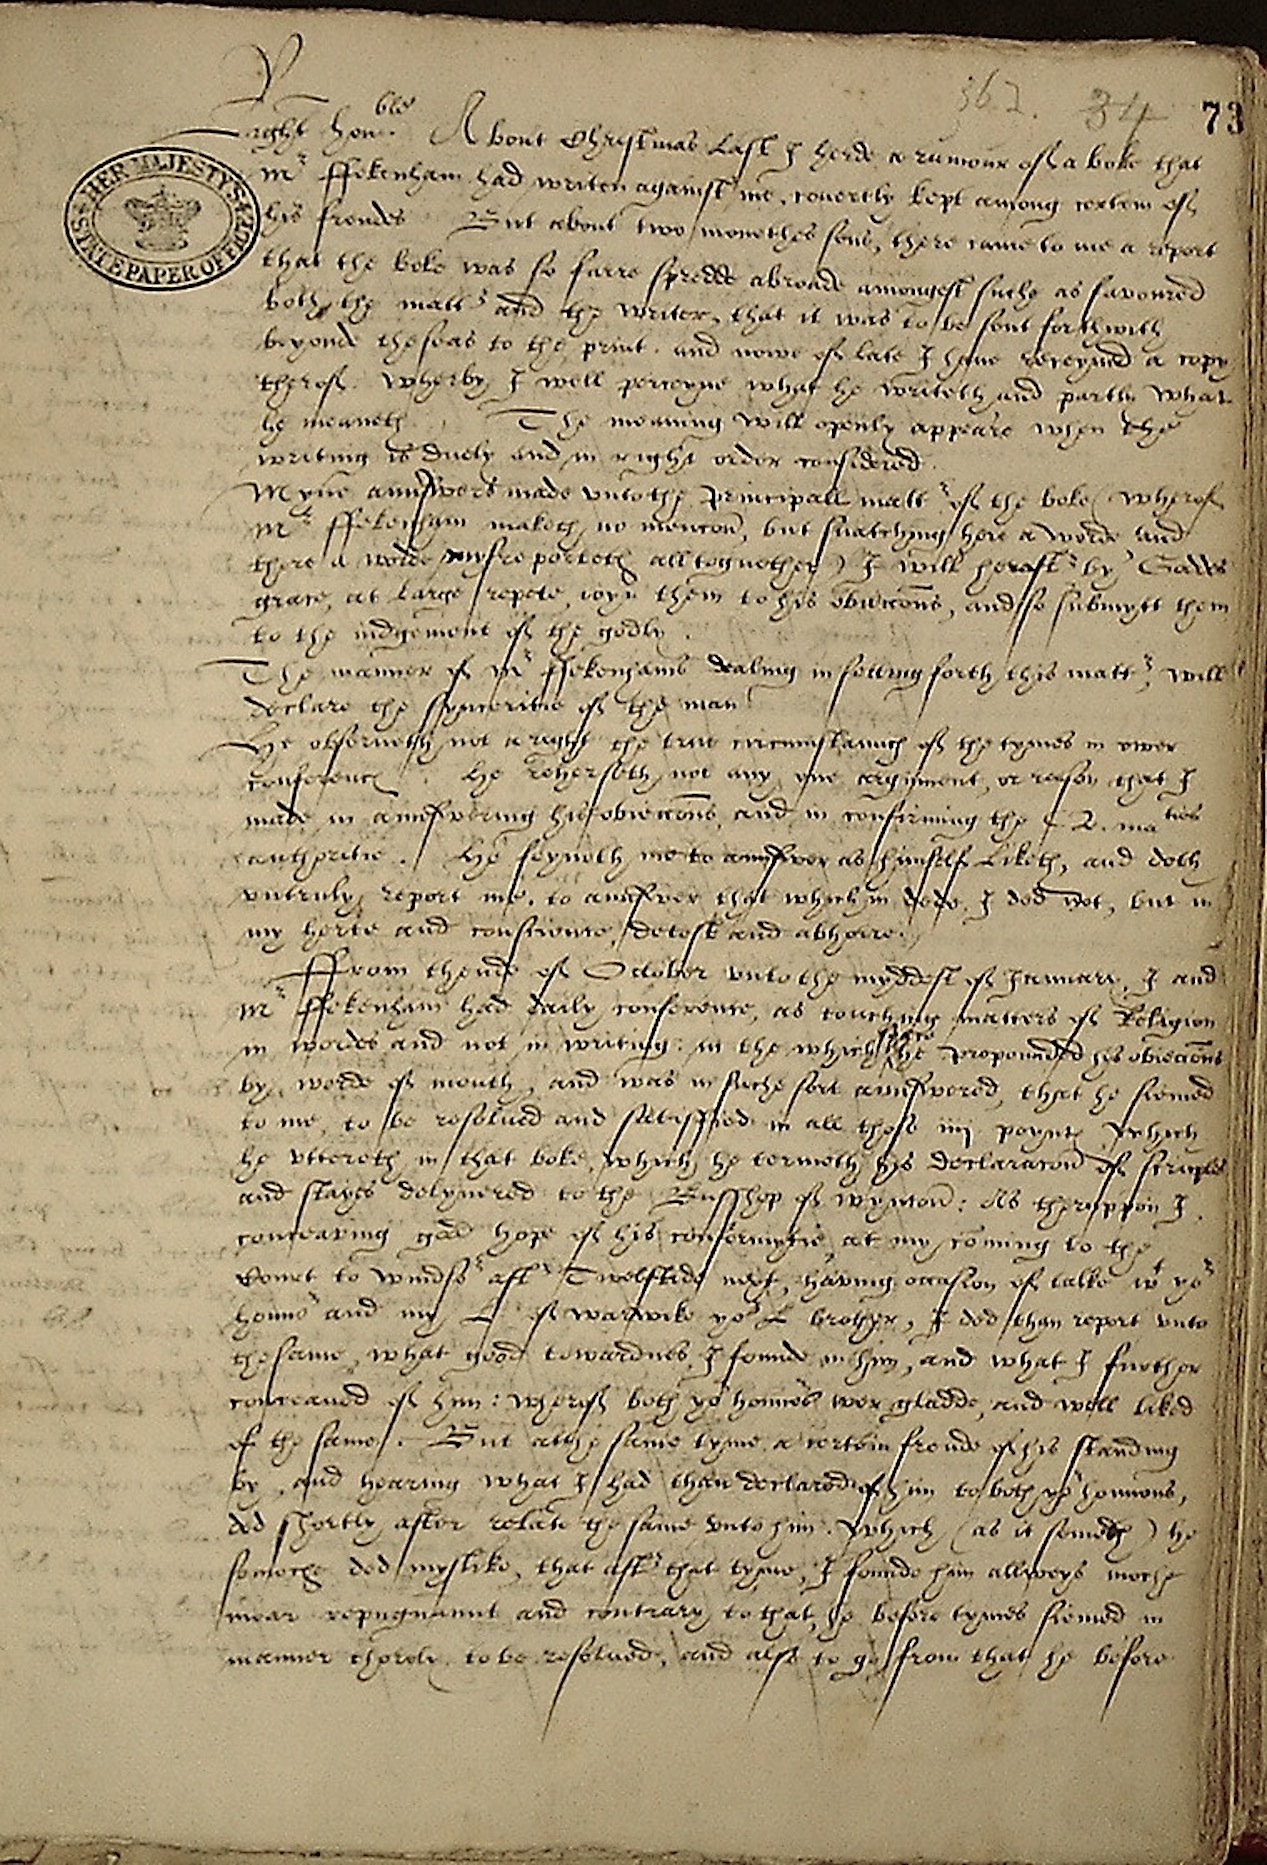 362. 34 73
HER MAJESTY'S STATE PAPER OFFICE
Right hon:ble About Christmas last I herde a rumour of a boke that
Mr ffekenham had writen against me, covertly kept among certein of
his frendes But about two monethes sens, there came to me a report
that the boke was so farre spredde abroade amongest suche as favoured
both the mattr and the writer, that it was to be sent forthwith
beyonde the seas to the print. and nowe of late I have receyved a copy
therof. Wherby I well perceyve what he writeth and partly what
he meaneth. The meaning will openly appeare when the
writing is duely and in right order considered.
Myne aunswers made unto the principall mattr of the boke (wherof
Mr ffekenham maketh no mencon, but snatching here a worde and
there a worde mysreporteth alltogeother) I will heraftr by Godes
grace, at large repete, ioyn them to his obieccons, and so submytt them
to the iudgement of the godly.
The manner of Mr ffekenhams dealing in setting forth this mattr, will
declare the synceritie of the man.
He observeth not aright the true circumstaunce of the tymes in ower
conference. He reherseth not any one argument, or reason that I
made in aunswering his obieccons, and in confirming the Q. maties
authoritie. He feyneth me to aunswer as himself liketh, and doth
untruly report me, to aunswer that which in dede I ded not, but in
my herte and conscience, detest and abhorre.
ffrom thende of October unto the myddest of January, I and
Mr ffekenham had daily conference, as touching matters of Religion
in wordes and not in writing: in the which space he propounded his obieccons
by worde of mouth, and was in suche sort aunswered, that he siemed
to me, to be resolved and satisfied in all those iiij poyntes which
he uttereth in that boke, which he termeth his declaracon of scruples
and stayes delyvered to the Busshop of wynton: As theruppon I
conceaving good hope of his conformytie, at my coming to the
Court to windsr aftr Twelftide next, having occasion of talke wt yor
honor and my L of warwike yor L brother, I ded than report unto
the same, what good towardnes I founde in him, and what I further
conceaved of him: wherof both yor honors wer gladde, and well liked
of the same. But at the same tyme a certein frende of his standing
by, and hearing what I had than declared of him to both yor honors,
ded shortly after relate the same unto him. Which (as it semeth) he
so moche ded myslike, that aftr that tyme, I founde him allweys moche
moar repugnaunt and contrary to that, he before tymes siemed in
manner therely to be resolved, and also to go from that he before